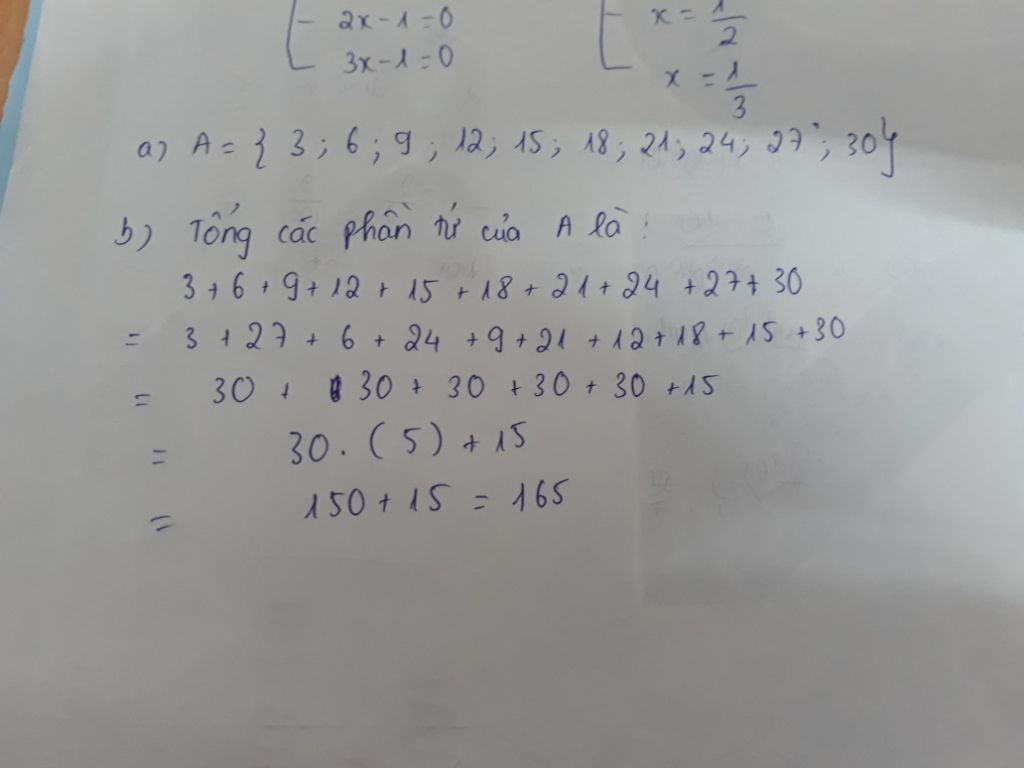 2x-1=0 x = 1/2
3x-1=0 x = 1/3
a) A = { 3 ; 6 ; 9 ; 12 ; 15 ; 18 ; 21 ; 24 ; 27 ; 30}
b) Tổng các phần tử của A là :
3 + 6 + 9 + 12 + 15 + 18 + 21 + 24 + 27 + 30
= 3 + 27 + 6 + 24 + 9 + 21 + 12 + 18 + 15 + 30
= 30 + 30 + 30 + 30 + 30 + 15
= 30 . ( 5 ) + 15
= 150 + 15 = 165